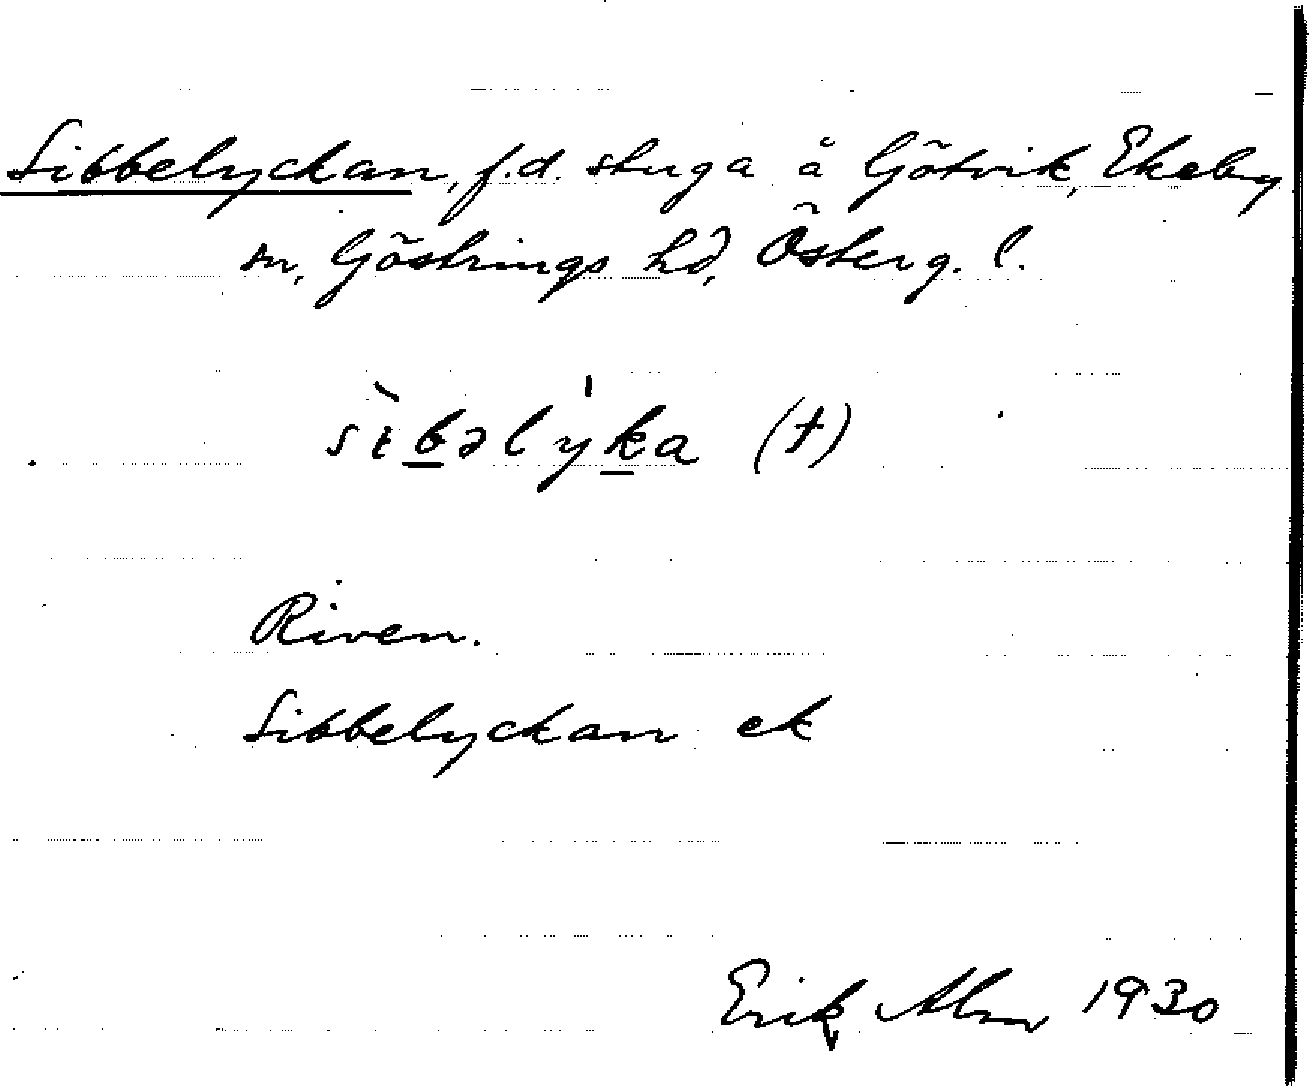 Sibbelyckan, f.d. stuga å Götvik, Ekeby
sn, Göstrings hd, Österg. l.
sìbəlýka (†)
Riven.
Sibbelyckan ek
Erik Alm 1930